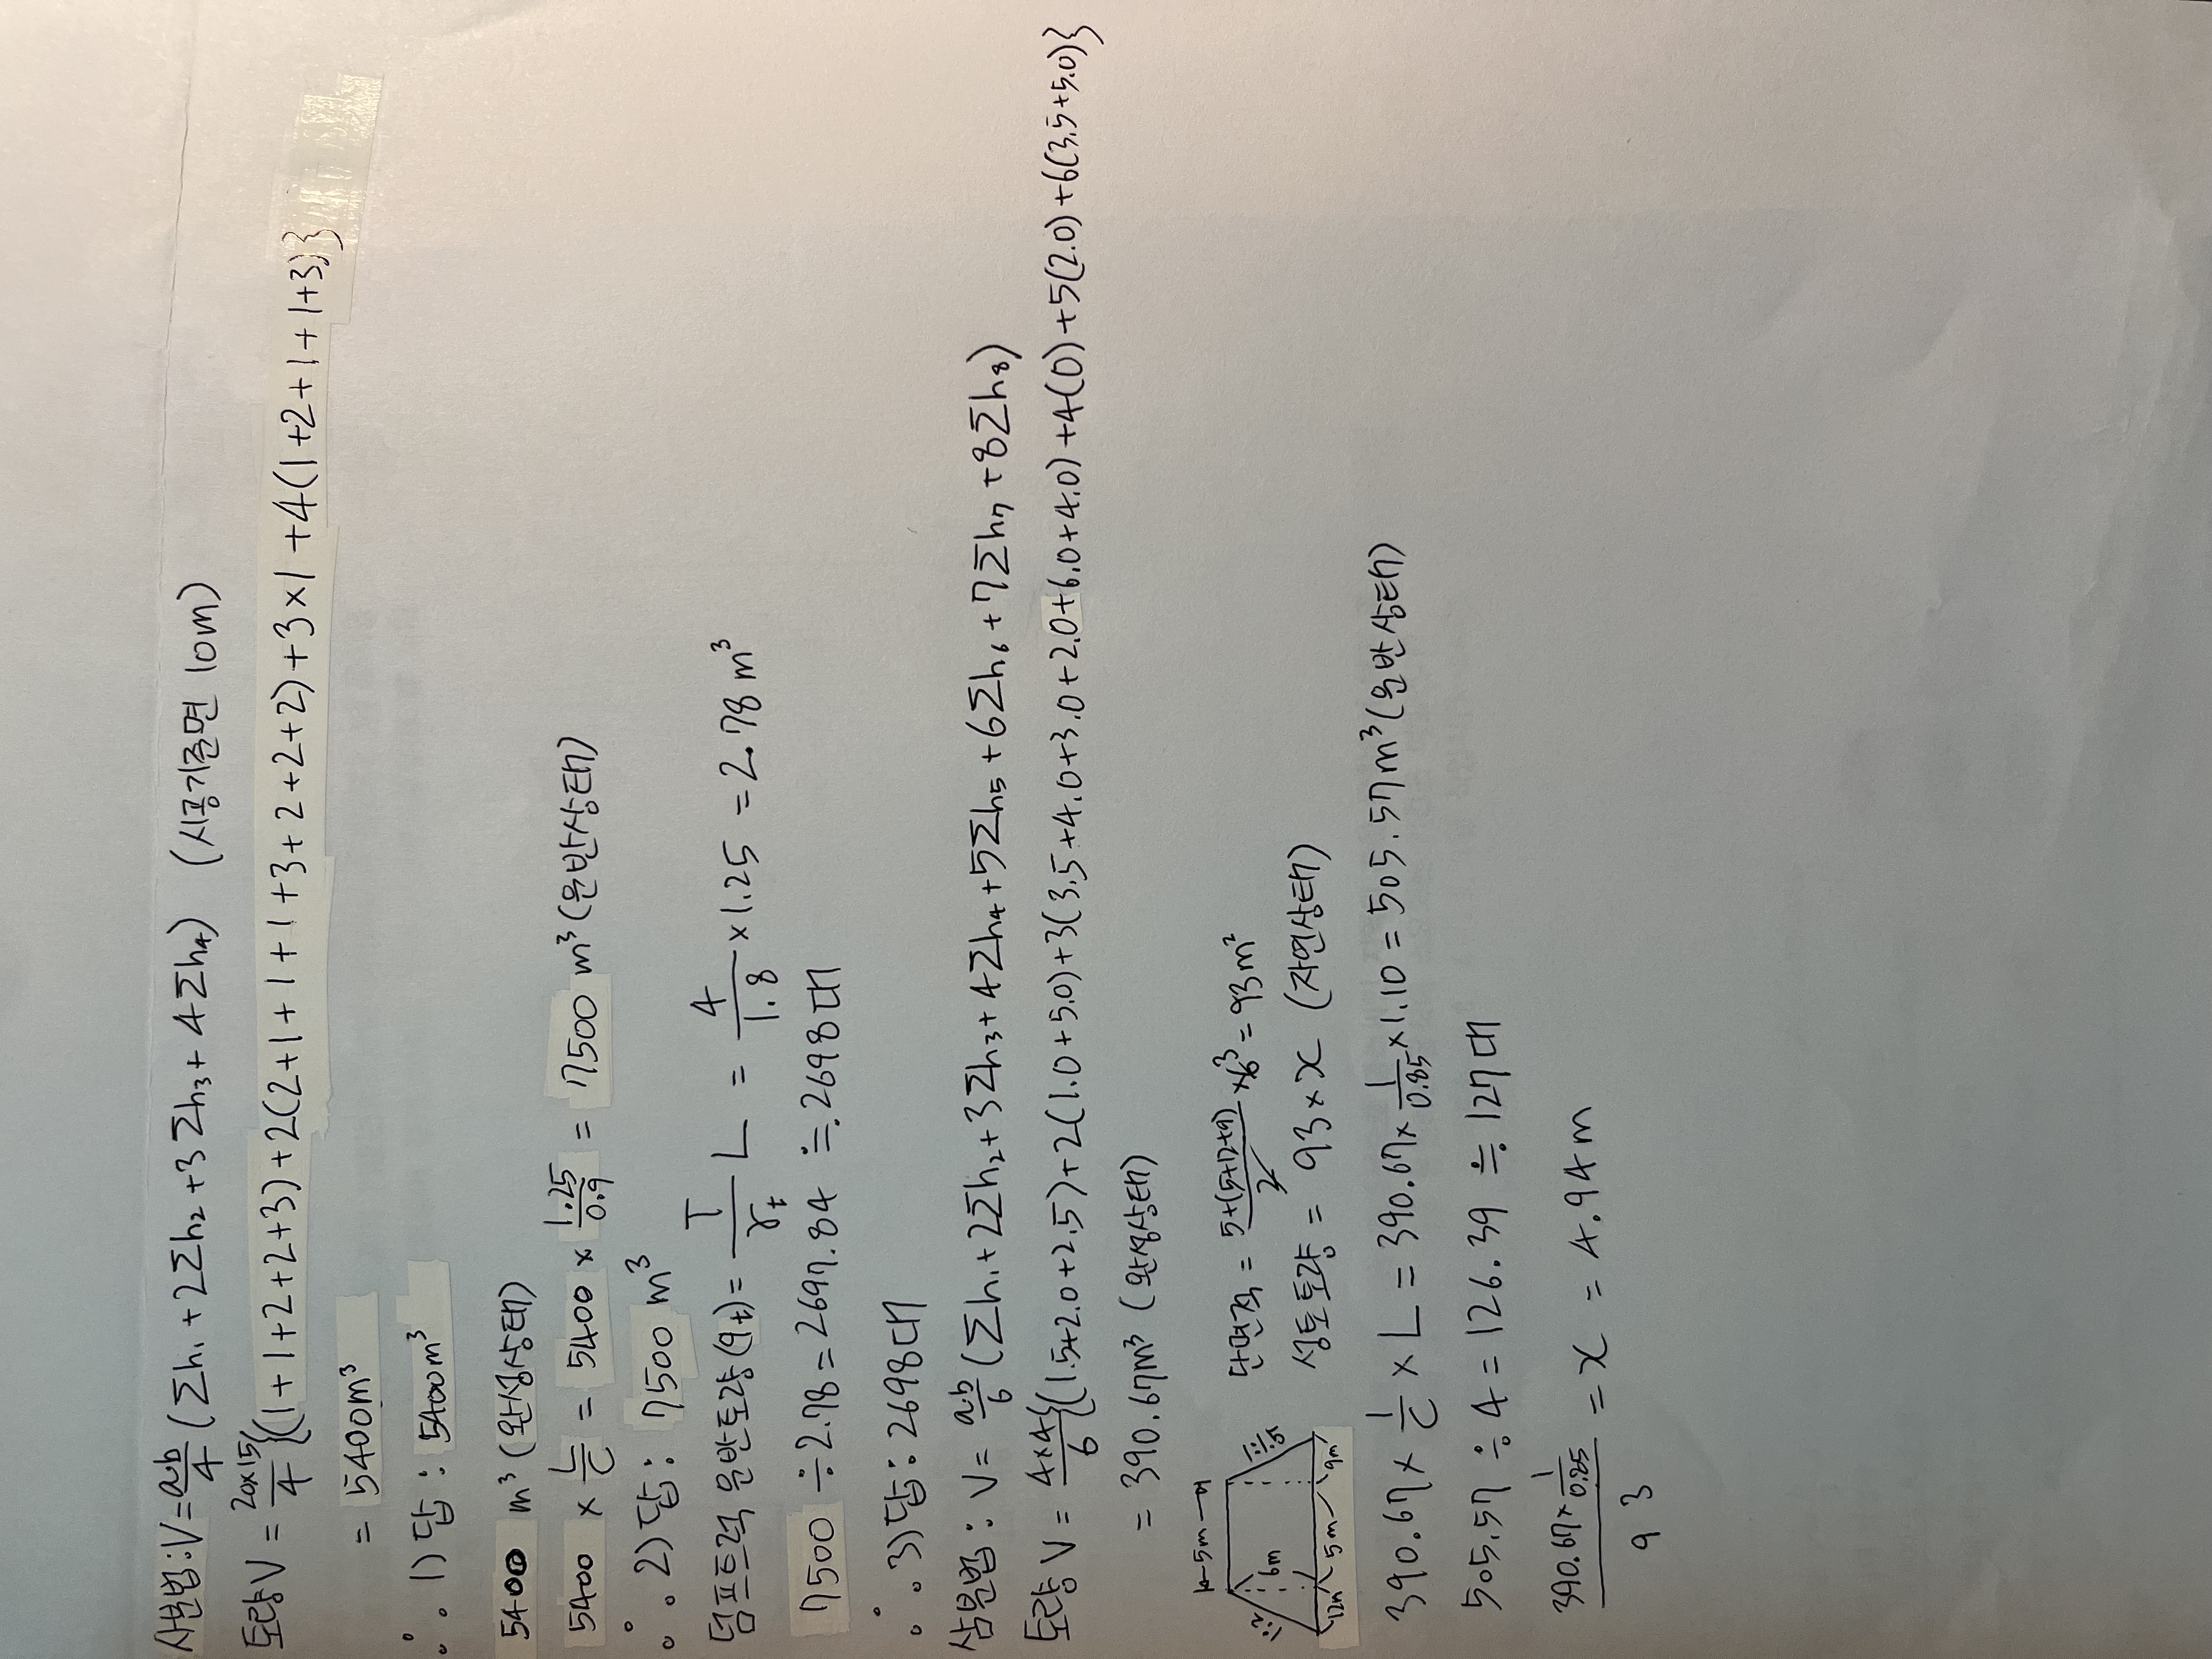 사분법 : V = ab/4 (Σh₁ + 2Σh₂ + 3Σh₃ + 4Σh₄) (시공기준면 10m)
토량 V = 20×15/4 {(1+1+2+2+3)+2(2+1+1+1+1+3+2+2+2+2)+3×1+4(1+2+1+1+3)}
= 5400m³
∴ 1) 답 : 5400m³
5400 m³ (완성상태)
5400 × L/C = 5400 × 1.25/0.9 = 7500 m³ (운반상태)
∴ 2) 답 : 7500 m³
덤프트럭 운반토량 (qt) = T/γt L = 4/1.8 × 1.25 = 2.78 m³
7500 ÷ 2.78 = 2697.84 ≒ 2698대
∴ 3) 답 : 2698대
삼분법 : V = ab/6 (Σh₁ + 2Σh₂ + 3Σh₃ + 4Σh₄ + 5Σh₅ + 6Σh₆ + 7Σh₇ + 8Σh₈)
토량 V = 4×4/6 {(1.5+2.0+2.5)+2(1.0+5.0)+3(3.5+4.0+3.0+2.0+6.0+4.0)+4(0)+5(2.0)+6(3.5+5.0)}
= 390.67m³ (완성상태)
5m
1:2
6m
1:1.5
12m
5m
9m
단면적 = 5+(5+12+9)/2 × 6 3 = 93m²
성토토량 = 93 × x (자연상태)
390.67 × 1/C × L = 390.67 × 1/0.85 × 1.10 = 505.57m³ (운반상태)
505.57 ÷ 4 = 126.39 ≒ 127대
390.67 × 1/0.85 / 93 = x = 4.94m